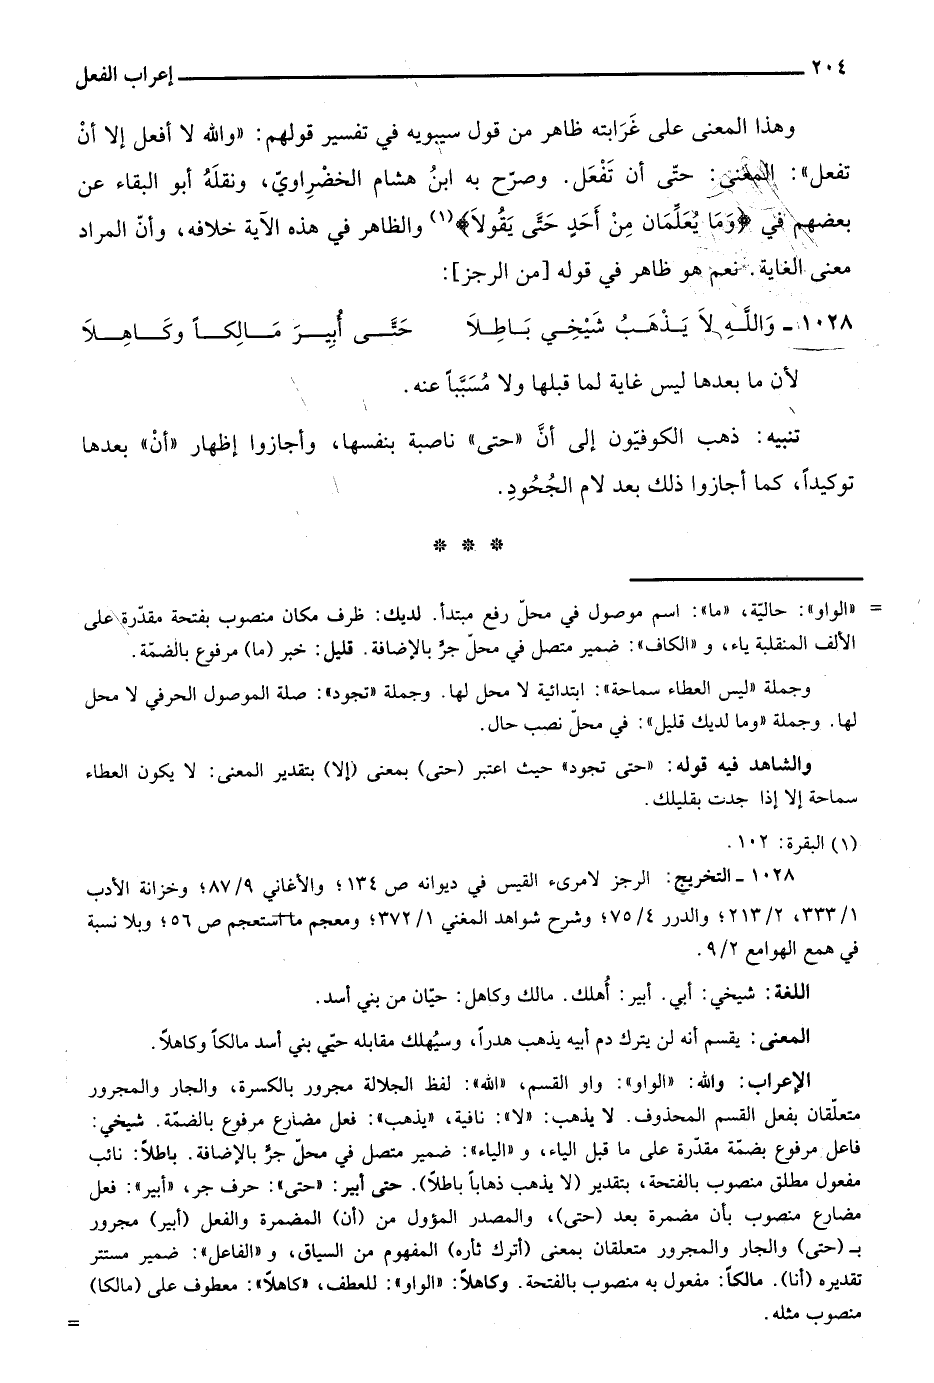 ٢٠٤ إعراب الفعل
وهذا المعنى على غَرَابته ظاهر من قول سيبويه في تفسير قولهم: «والله لا أفعل إلا أنْ
تفعل»: المعنى: حتّى أن تَفْعَل. وصرّح به ابنُ هشام الخضْراويّ، ونقلَهُ أبو البقاء عن
بعضهم في ﴿وَمَا يُعَلِّمَان مِنْ أَحَدٍ حَتَّى يَقُولاَ﴾(١) والظاهر في هذه الآية خلافه، وأنّ المراد
معنى الغاية. نعم هو ظاهر في قوله [من الرجز]:
١٠٢٨ ـ وَاللَّهِ لاَ يَذْهَبُ شَيْخِي بَاطِلاَ حَتَّى أُبِيرَ مَالِكاً وكَاهِلاَ
لأن ما بعدها ليس غاية لما قبلها ولا مُسَبَّباً عنه.
تنبيه: ذهب الكوفيّون إلى أنَّ «حتى» ناصبة بنفسها، وأجازوا إظهار «أنْ» بعدها
توكيداً، كما أجازوا ذلك بعد لام الجُحُودِ.
* * *
= «الواو»: حاليّة، «ما»: اسم موصول في محلّ رفع مبتدأ. لديك: ظرف مكان منصوب بفتحة مقدّرة على
الألف المنقلبة ياء، و «الكاف»: ضمير متصل في محلّ جرّ بالإضافة. قليل: خبر (ما) مرفوع بالضمّة.
وجملة «ليس العطاء سماحة»: ابتدائية لا محل لها. وجملة «تجود»: صلة الموصول الحرفي لا محل
لها. وجملة «وما لديك قليل»: في محلّ نصب حال.
والشاهد فيه قوله: «حتى تجود» حيث اعتبر (حتى) بمعنى (إلا) بتقدير المعنى: لا يكون العطاء
سماحة إلا إذا جدت بقليلك.
(١) البقرة: ١٠٢.
١٠٢٨ ـ التخريج: الرجز لامرىء القيس في ديوانه ص ١٣٤؛ والأغاني ٨٧/٩؛ وخزانة الأدب
٣٣٣/١، ٢١٣/٢؛ والدرر ٧٥/٤؛ وشرح شواهد المغني ٣٧٢/١؛ ومعجم ما استعجم ص ٥٦؛ وبلا نسبة
في همع الهوامع ٩/٢.
اللغة: شيخي: أبي. أبير: أُهلك. مالك وكاهل: حيّان من بني أسد.
المعنى: يقسم أنه لن يترك دم أبيه يذهب هدراً، وسيُهلك مقابله حيّي بني أسد مالكاً وكاهلاً.
الإعراب: والله: «الواو»: واو القسم، «الله»: لفظ الجلالة مجرور بالكسرة، والجار والمجرور
متعلّقان بفعل القسم المحذوف. لا يذهب: «لا»: نافية، «يذهب»: فعل مضارع مرفوع بالضمّة. شيخي:
فاعل مرفوع بضمّة مقدّرة على ما قبل الياء، و «الياء»: ضمير متصل في محلّ جرّ بالإضافة. باطلاً: نائب
مفعول مطلق منصوب بالفتحة، بتقدير (لا يذهب ذهاباً باطلاً). حتى أبير: «حتى»: حرف جر، «أبير»: فعل
مضارع منصوب بأن مضمرة بعد (حتى)، والمصدر المؤول من (أن) المضمرة والفعل (أبير) مجرور
بـ (حتى) والجار والمجرور متعلقان بمعنى (أترك ثأره) المفهوم من السياق، و «الفاعل»: ضمير مستتر
تقديره (أنا). مالكاً: مفعول به منصوب بالفتحة. وكاهلاً: «الواو»: للعطف، «كاهلاً»: معطوف على (مالكا)
منصوب مثله.
=